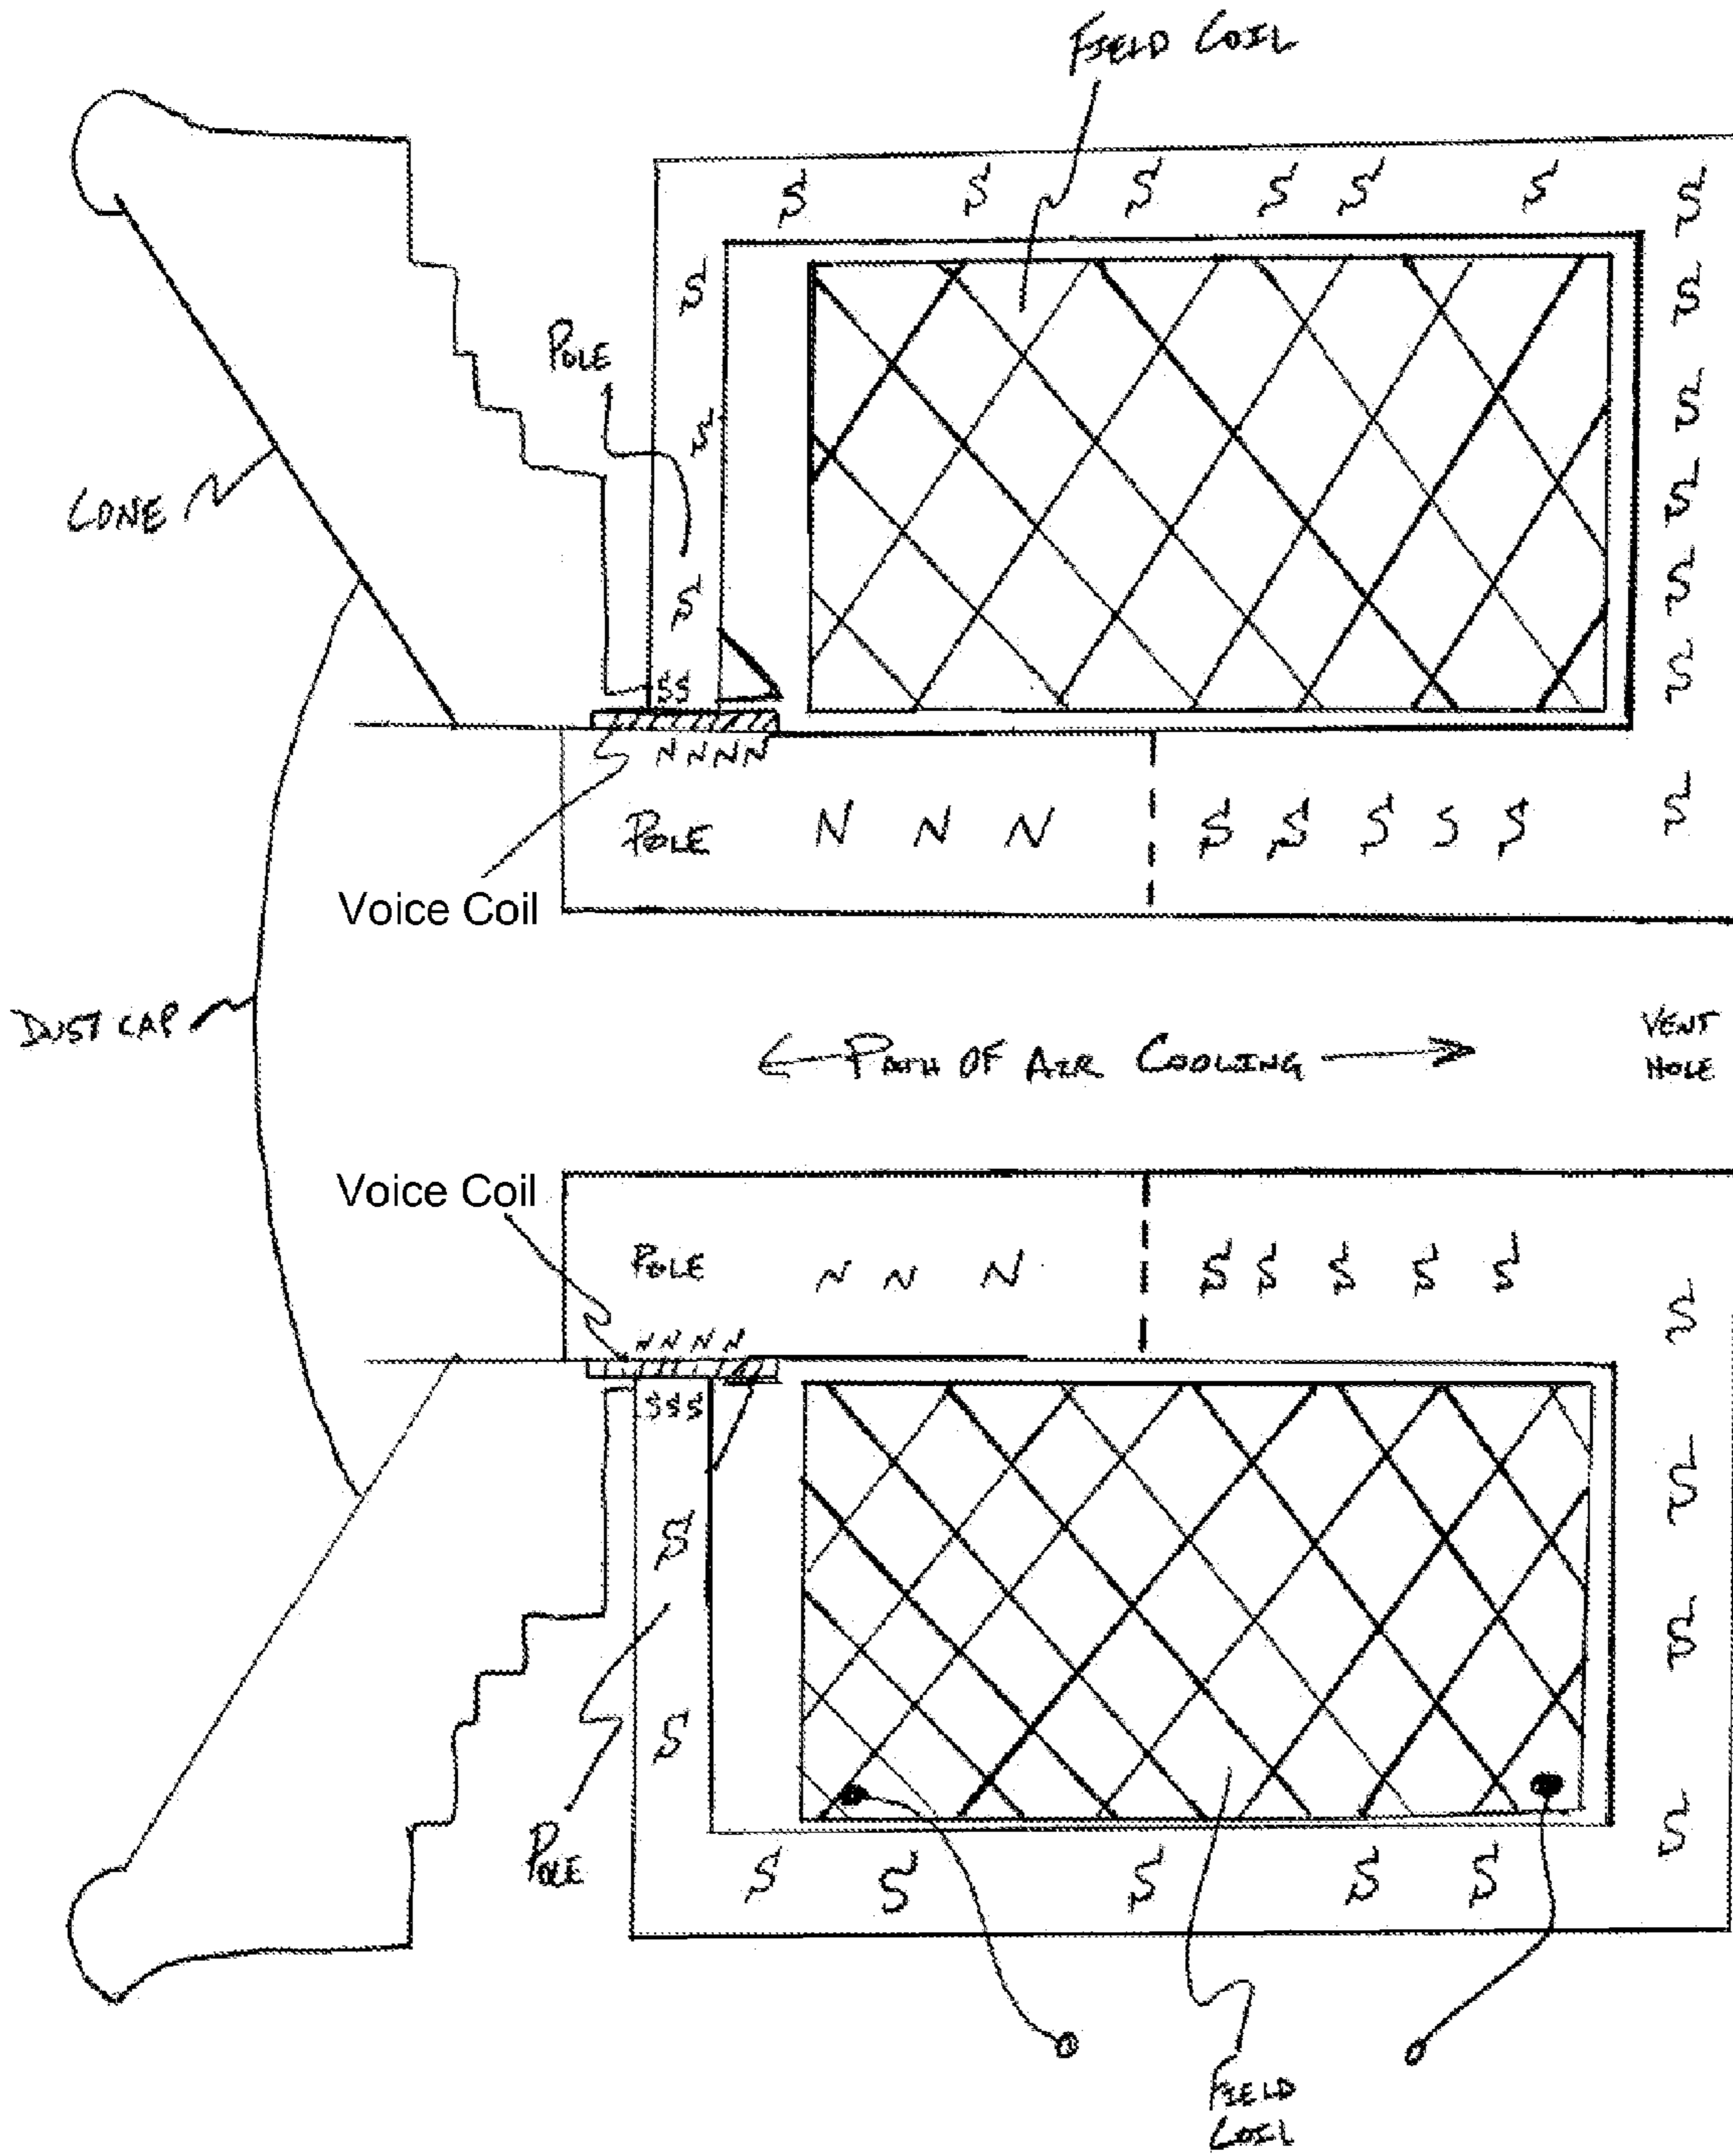 FIELD COIL
S S S S S S S
S S
POLE
S S
S
CONE
S
S S
SS S
N N N N
POLE N N N S S S S S S
Voice Coil
DUST CAP
← PATH OF AIR COOLING →
VENT
HOLE
Voice Coil
POLE N N N S S S S S
S
N N N N
SSS
S
S
S
S
POLE
S S S S S S
FIELD
COIL